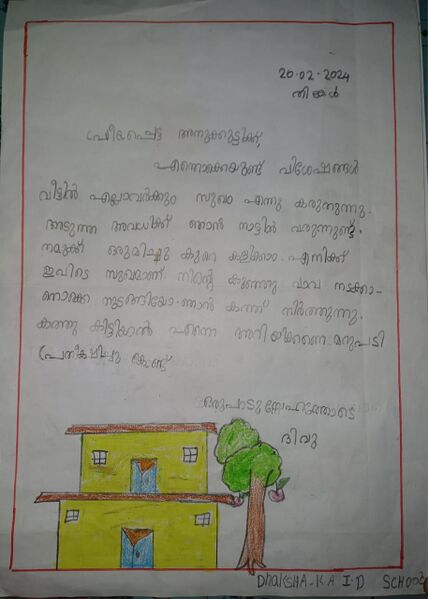 20.02.2024
തിങ്കൾ
പ്രിയപ്പെട്ട അനുക്കുട്ടിക്ക്,
എന്തൊക്കെയുണ്ട് വിശേഷങ്ങൾ
വീട്ടിൽ എല്ലാവർക്കും സുഖം എന്നു കരുതുന്നു.
അടുത്ത അവധിക്ക് ഞാൻ നാട്ടിൽ വരുന്നുണ്ട്.
നമുക്ക് ഒരുമിച്ചു കുറെ കളിക്കാം. എനിക്ക്
ഇവിടെ സുഖമാണ് നിന്റെ കുഞ്ഞു വാവ നടക്കാ-
നൊക്കെ തുടങ്ങിയോ. ഞാൻ കത്ത് നിർത്തുന്നു.
കത്തു കിട്ടിയാൽ എന്നെ മറുപടി
പ്രതീക്ഷിച്ചു കൊണ്ട്
ഒരുപാടു സ്നേഹത്തോടെ
ദിവു
DHAKSHA.K.A I.D SCHOOL